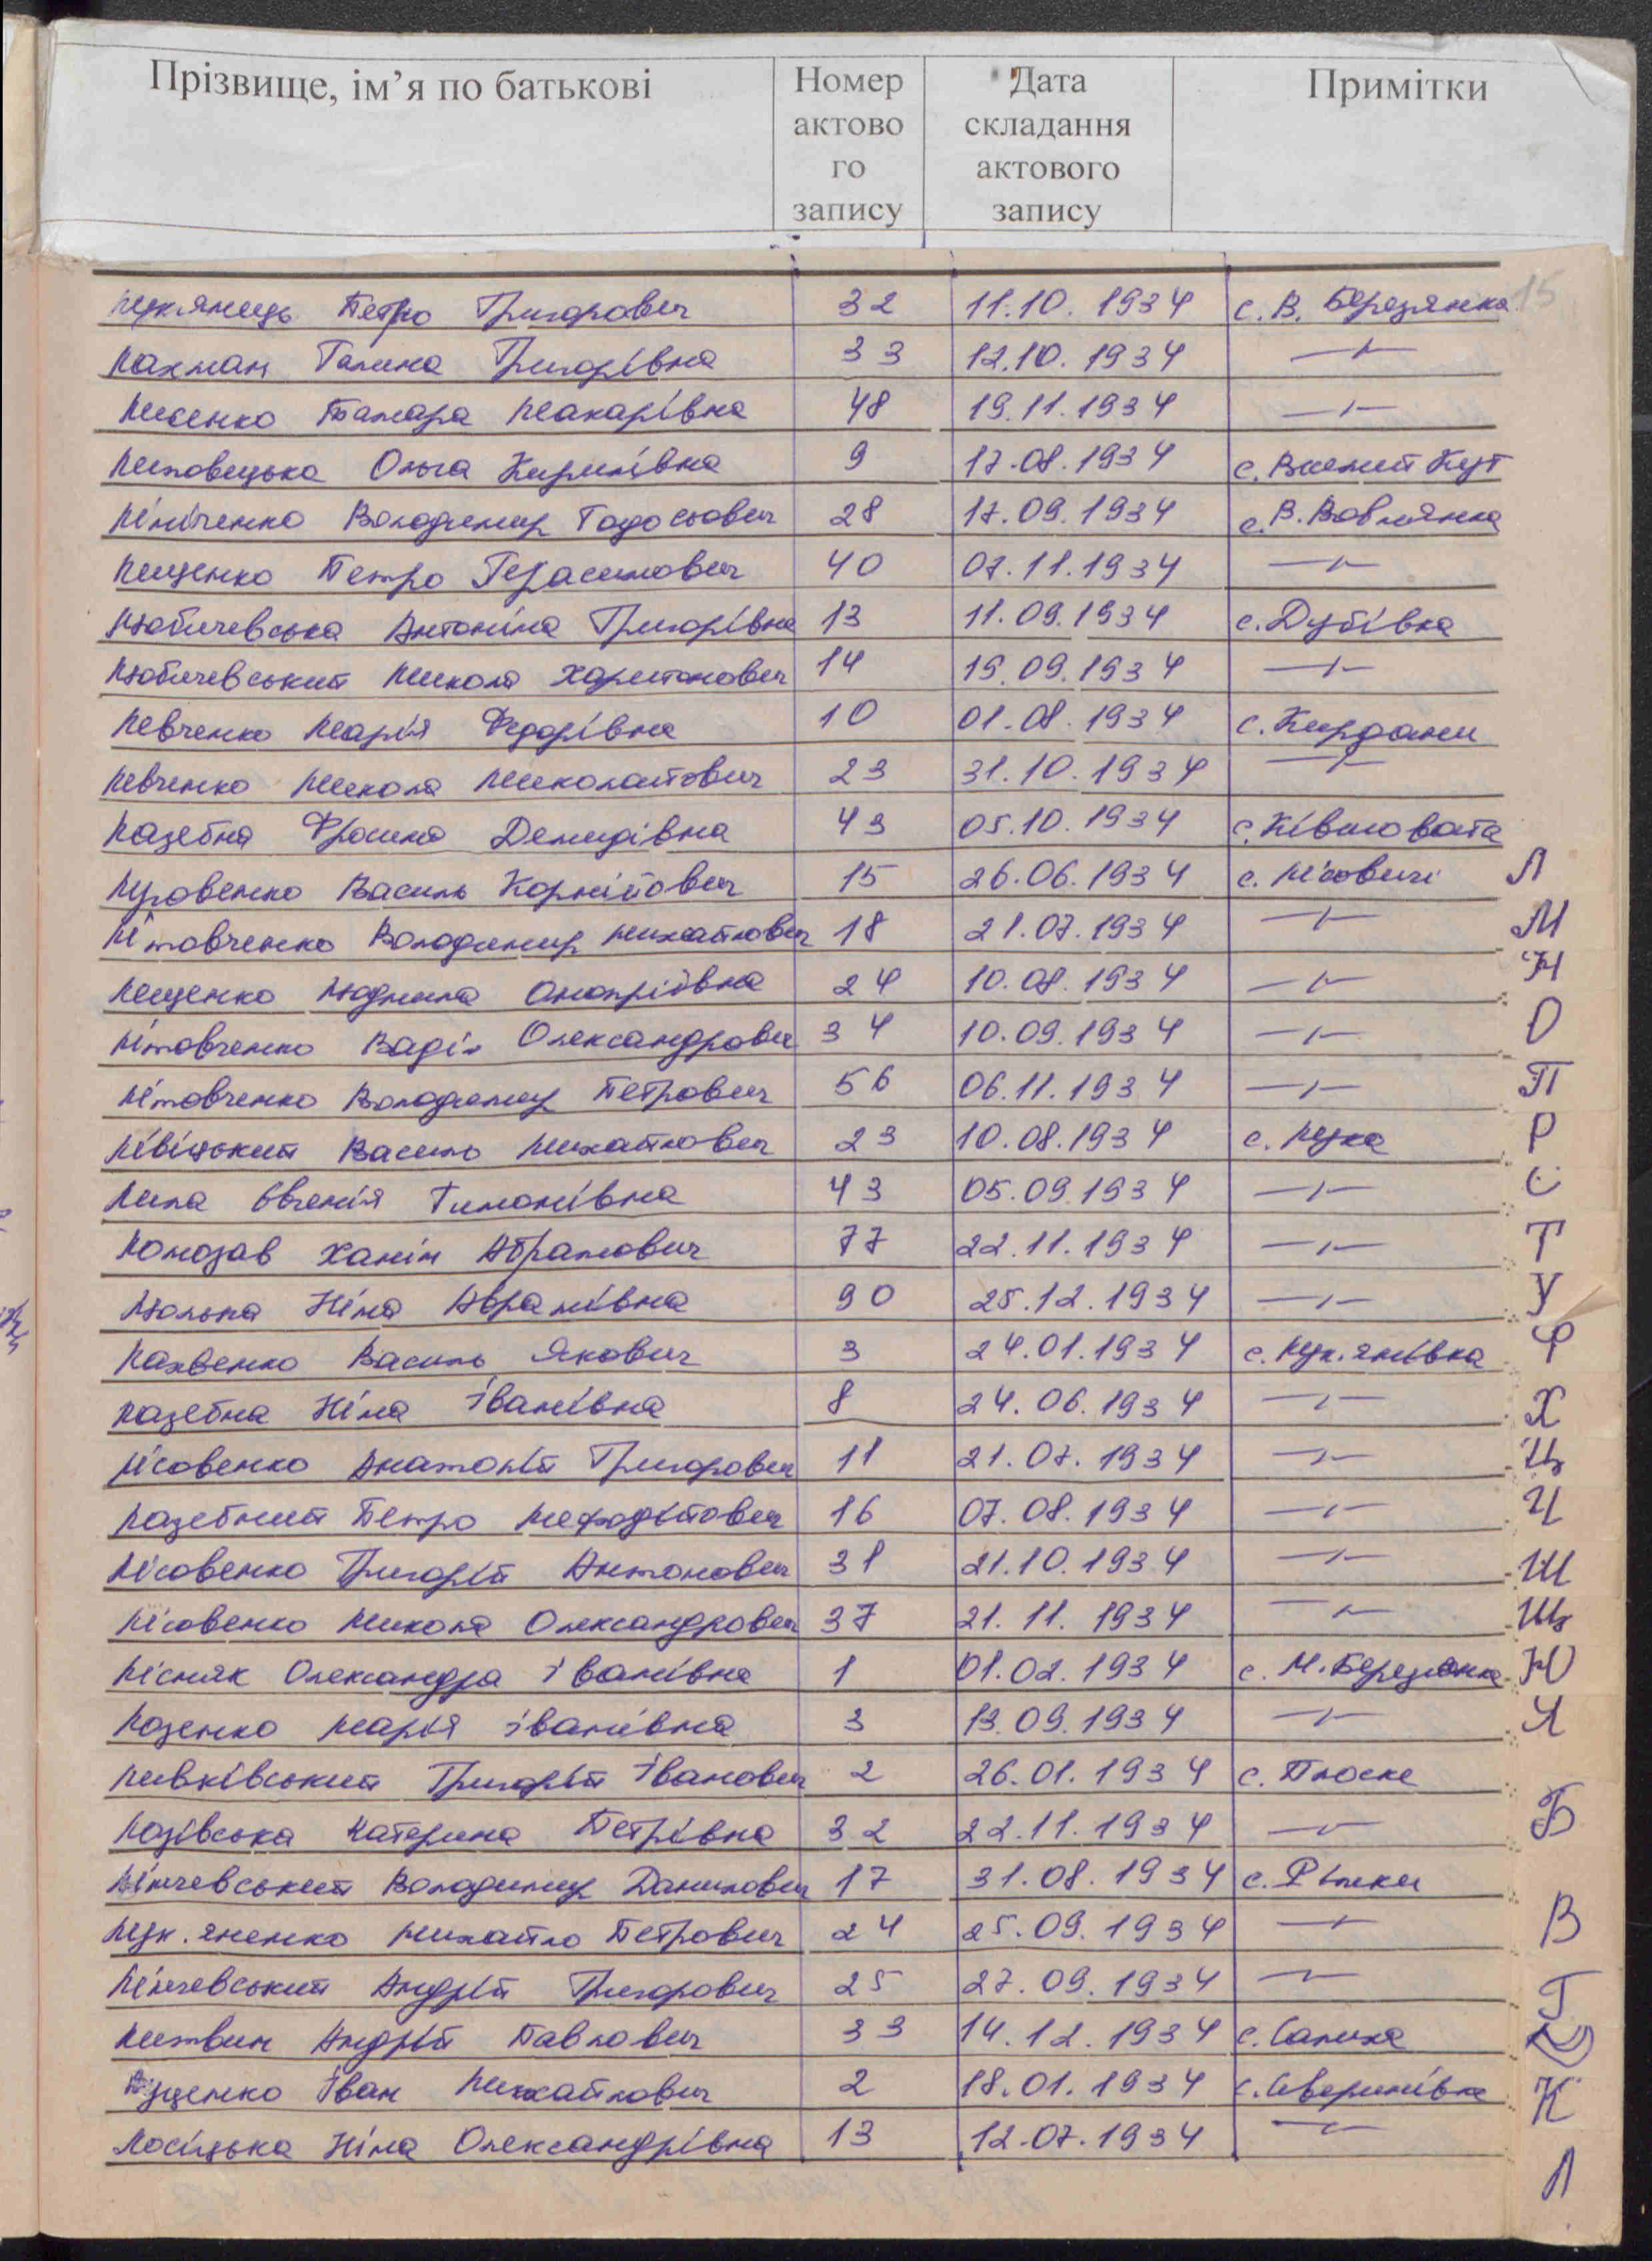 Прізвище, ім’я по батькові Номер Дата Примітки
актово складання
го актового
запису запису
15
Лук.янець Петро Григорович 32 11.10.1934 с. В. Березянка
Лахман Галина Григорівна 33 12.10.1934 —„—
Лисенко Тамара Макарівна 48 19.11.1934 —„—
Литовицька Ольга Кирилівна 9 17.08.1934 с. Веселий Кут
Лініченко Володимир Тодосьович 28 17.09.1934 с. В. Вовнянка
Лещенко Петро Герасимович 40 07.11.1934 —„—
Любичевська Антоніна Григорівна 13 11.09.1934 с. Дубівка
Любичевський Микола Харитонович 14 19.09.1934 —„—
Левченко Марія Федорівна 10 01.08.1934 с. Кирдани
Левченко Микола Миколайович 23 31.10.1934 —„—
Лазебна Фросина Демидівна 43 05.10.1934 с. Ківшовата
Луговенко Василь Корнійович 15 26.06.1934 с. Лісовичі Л
Літовченко Володимир Михайлович 18 21.07.1934 —„— М
Лещенко Людмила Онопріївна 24 10.08.1934 —„— Н
Літовченко Вадім Олександрович 34 10.09.1934 —„— О
Літовченко Володимир Петрович 56 06.11.1934 —„— П
Лівіцький Василь Михайлович 23 10.08.1934 с. Лука Р
Липа Євгенія Тимонівна 43 05.09.1934 —„— С
Ломозав Ханін Абрамович 77 22.11.1934 —„— Т
Люлька Ніна Аврамівна 90 25.12.1934 —„— У
Лахвенко Василь Якович 3 24.01.1934 с. Лук.янівка Ф
Лазебна Ніна Іванівна 8 24.06.1934 —„— Х
Лісовенко Анатолій Григорович 11 21.07.1934 —„— Ц
Лазебний Петро Мефодійович 16 07.08.1934 —„— Ч
Лісовенко Григорій Антонович 31 21.10.1934 —„— Ш
Лісовенко Микола Олександрович 37 21.11.1934 —„— Щ
Лісняк Олександра Іванівна 1 01.02.1934 с. М. Березянка Ю
Лозенко Марія Іванівна 3 13.09.1934 —„— Я
Левківський Григорій Іванович 2 26.01.1934 с. Плоске
Лозівська Катерина Петрівна 32 22.11.1934 —„— Б
Лінчевський Володимир Данилович 17 31.08.1934 с. Ріжки
Лук.яненко Михайло Петрович 24 25.09.1934 —„— В
Лінчевський Андрій Григорович 25 27.09.1934 —„— Г
Литвин Андрій Павлович 33 14.12.1934 с. Салиха
Луценко Іван Михайлович 2 18.01.1934 с. Северинівка К
Лосіцька Ніна Олександрівна 13 12.07.1934 —„—
Л